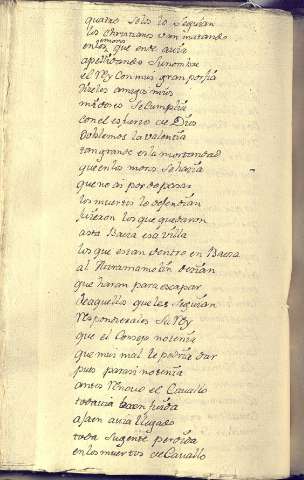 quatro solos lo seguian
los christianos van matando
en los moros que ende auia
apellidando su nombre
el Rey con muy gran porfia
dizeles amigos mios
mi deseo se cumplia
con el esfuerzo de Dios
doblemos la valentia
tan grande es la mortandad
que en los moros se hazia
que no ai por do pasar
los muertos lo defendian
fuieron los que quedaron
asta Baeza esa villa
los que estan dentro en Baeza
al Miramamolin dezian
que haran para escapar
de aquellos que les seguian
respondierales su Rey
que el Consejo no tenia
que muy mal le podria dar
pues para si no tenia
antes renouo el Cauallo
todauia
a Jaen auia llegado
toda su gente perdida
en los muertos de Cauallo